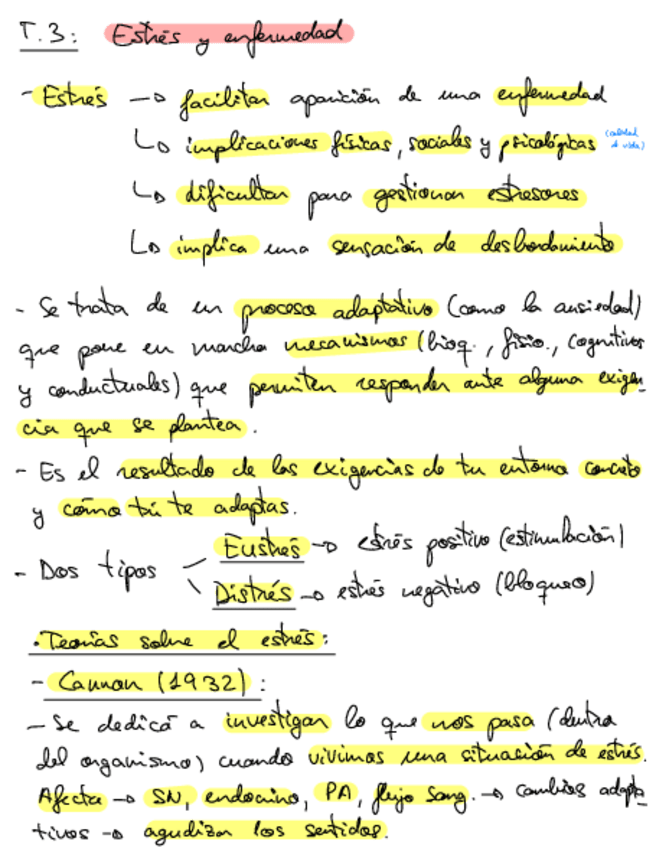 T.3: Estrés y enfermedad
- Estrés → facilitar aparición de una enfermedad
↳ implicaciones físicas, sociales y psicológicas (calidad d vida)
↳ dificultar para gestionar estresores
↳ implica una sensación de desbordamiento
- Se trata de un proceso adaptativo (como la ansiedad)
que pone en marcha mecanismos (bioq., fisio., cognitivos
y conductuales) que permiten responder ante alguna exigen-
cia que se plantea.
- Es el resultado de las exigencias de tu entorno concreto
y cómo tú te adaptas.
- Dos tipos
Eustrés → estrés positivo (estimulación)
Distrés → estrés negativo (bloqueo)
• Teorías sobre el estrés:
- Cannon (1932):
- Se dedicó a investigar lo que nos pasa (dentro
del organismo) cuando vivimos una situación de estrés.
Afecta → SN, endocrino, PA, flujo sang. → cambios adapta-
tivos → agudizar los sentidos.